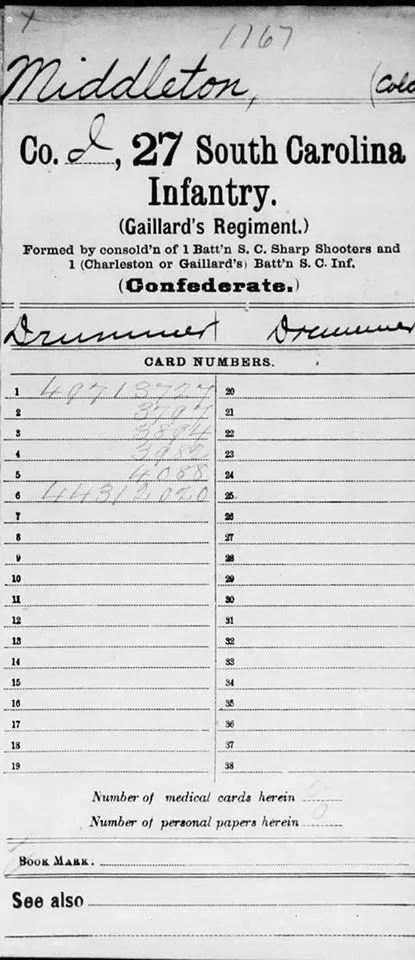 1767
Middleton, (Cold
Co. I, 27 South Carolina
Infantry.
(Gaillard's Regiment.)
Formed by consol'd'n of 1 Batt'n S. C. Sharp Shooters and
1 (Charleston or Gaillard's) Batt'n S. C. Inf.
(Confederate.)
Drummer Drummer
CARD NUMBERS.
1 49713727 20
2 3797 21
3 3894 22
4 3982 23
5 4088 24
6 44312020 25
7 26
8 27
9 28
10 29
11 30
12 31
13 32
14 33
15 34
16 35
17 36
18 37
19 38
Number of medical cards herein 0
Number of personal papers herein 0
BOOK MARK.
See also